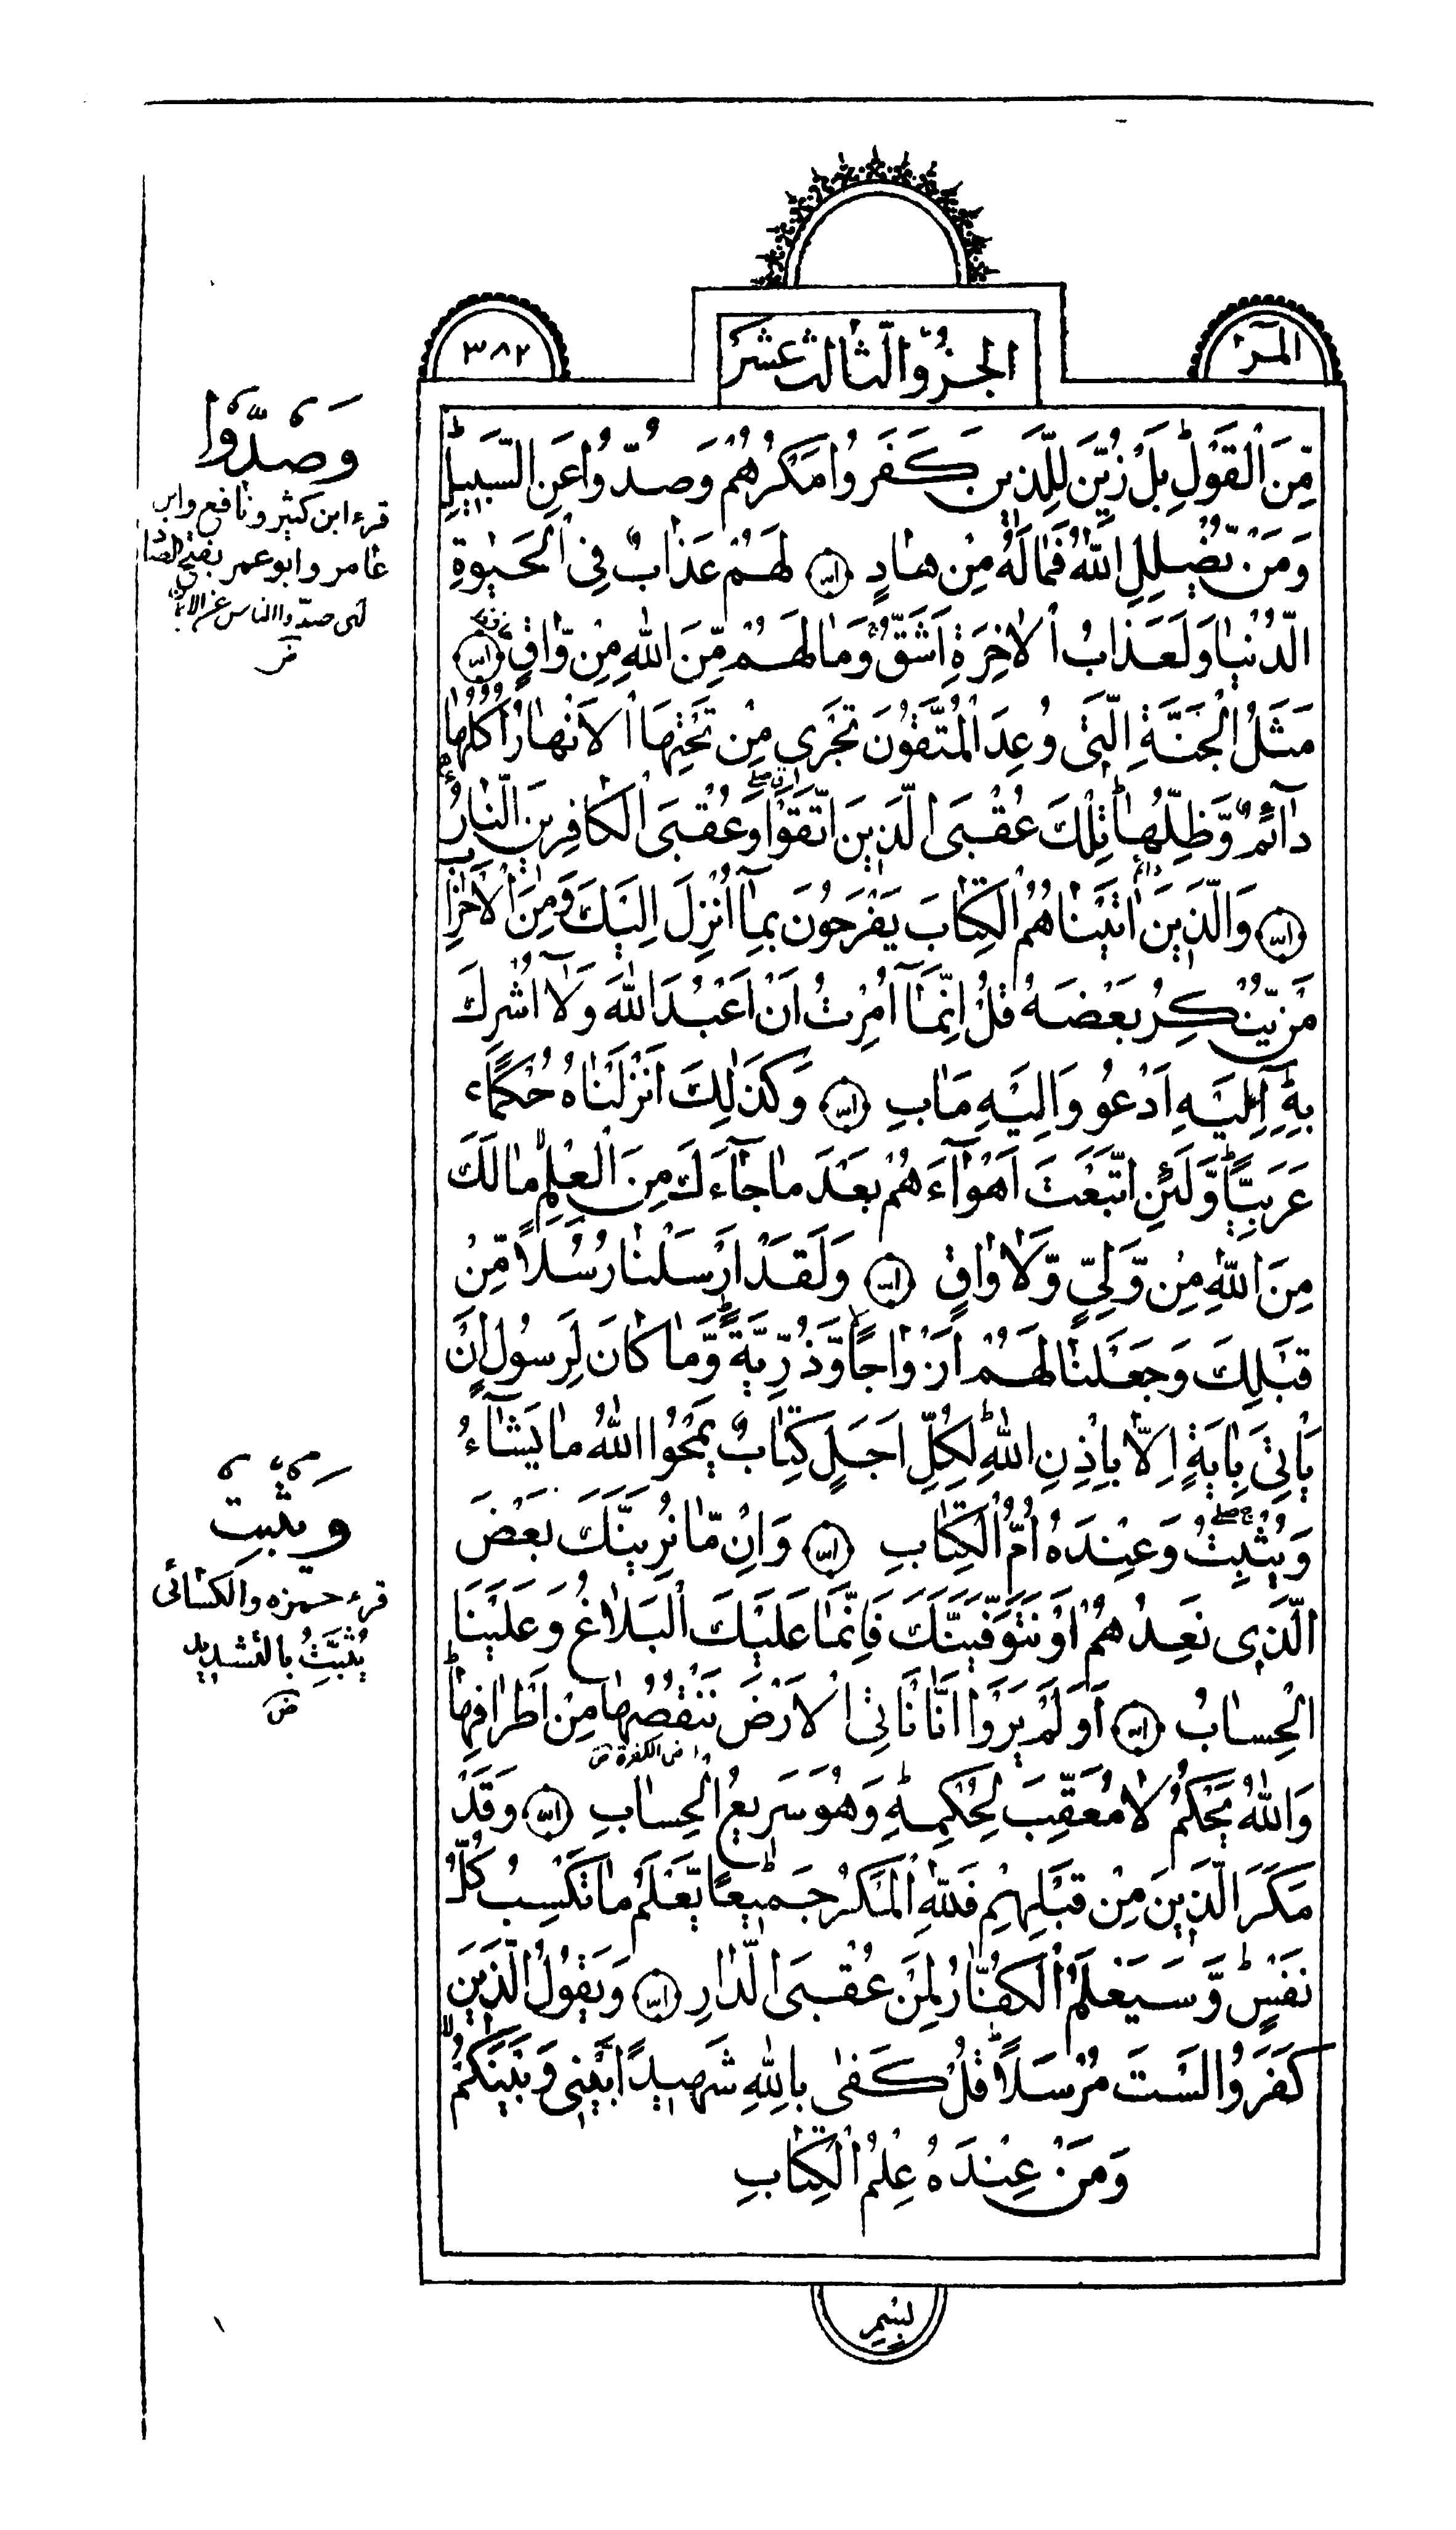 المر
الجزؤ الثالث عشر
٣٨٢
مِّنَ الْقَوْلِ بَلْ زُيِّنَ لِلَّذِينَ كَفَرُوا مَكْرُهُمْ وَصُدُّوا عَنِ السَّبِيلِ
وَمَنْ يُضْلِلِ اللّٰهُ فَمَا لَهُ مِنْ هَادٍ لَهُمْ عَذَابٌ فِي الْحَيٰوةِ
الدُّنْيَا وَلَعَذَابُ الْاٰخِرَةِ اَشَقُّ وَمَا لَهُمْ مِّنَ اللّٰهِ مِنْ وَّاقٍ
مَثَلُ الْجَنَّةِ الَّتِي وُعِدَ الْمُتَّقُونَ تَجْرِي مِنْ تَحْتِهَا الْاَنْهَارُ اُكُلُهَا
دَآئِمٌ وَّظِلُّهَا تِلْكَ عُقْبَى الَّذِينَ اتَّقَوْا وَعُقْبَى الْكَافِرِينَ النَّارُ
وَالَّذِينَ اٰتَيْنَاهُمُ الْكِتَابَ يَفْرَحُونَ بِمَآ اُنْزِلَ اِلَيْكَ وَمِنَ الْاَحْزَابِ
مَنْ يُّنْكِرُ بَعْضَهُ قُلْ اِنَّمَآ اُمِرْتُ اَنْ اَعْبُدَ اللّٰهَ وَلَآ اُشْرِكَ
بِهِ اِلَيْهِ اَدْعُو وَاِلَيْهِ مَاٰبِ وَكَذٰلِكَ اَنْزَلْنَاهُ حُكْمًا
عَرَبِيًّا وَّلَئِنِ اتَّبَعْتَ اَهْوَآءَهُمْ بَعْدَ مَا جَآءَكَ مِنَ الْعِلْمِ مَا لَكَ
مِنَ اللّٰهِ مِنْ وَّلِيٍّ وَّلَا وَاقٍ وَلَقَدْ اَرْسَلْنَا رُسُلًا مِّنْ
قَبْلِكَ وَجَعَلْنَا لَهُمْ اَزْوَاجًا وَّذُرِّيَّةً وَّمَا كَانَ لِرَسُولٍ اَنْ
يَأْتِيَ بِاٰيَةٍ اِلَّا بِاِذْنِ اللّٰهِ لِكُلِّ اَجَلٍ كِتَابٌ يَمْحُوا اللّٰهُ مَا يَشَآءُ
وَيُثْبِتُ وَعِنْدَهُ اُمُّ الْكِتَابِ وَاِنْ مَّا نُرِيَنَّكَ بَعْضَ
الَّذِي نَعِدُهُمْ اَوْ نَتَوَفَّيَنَّكَ فَاِنَّمَا عَلَيْكَ الْبَلَاغُ وَعَلَيْنَا
الْحِسَابُ اَوَلَمْ يَرَوْا اَنَّا نَأْتِي الْاَرْضَ نَنْقُصُهَا مِنْ اَطْرَافِهَا
وَاللّٰهُ يَحْكُمُ لَا مُعَقِّبَ لِحُكْمِهِ وَهُوَ سَرِيعُ الْحِسَابِ وَقَدْ
مَكَرَ الَّذِينَ مِنْ قَبْلِهِمْ فَلِلّٰهِ الْمَكْرُ جَمِيعًا يَّعْلَمُ مَا تَكْسِبُ كُلُّ
نَفْسٍ وَّسَيَعْلَمُ الْكُفَّارُ لِمَنْ عُقْبَى الدَّارِ وَيَقُولُ الَّذِينَ
كَفَرُوا لَسْتَ مُرْسَلًا قُلْ كَفٰى بِاللّٰهِ شَهِيدًا بَيْنِي وَبَيْنَكُمْ
وَمَنْ عِنْدَهُ عِلْمُ الْكِتَابِ
بِسْمِ
وَصَدُّوا
قرء ابن كثير ونافع وابن
عامر وابو عمر بفتح الصاد
اى صدّوا الناس عن الايمان
ض
وَيُثَبِّتُ
قرء حمزه والكسائى
يُثَبِّتُ بالتشديد
ض